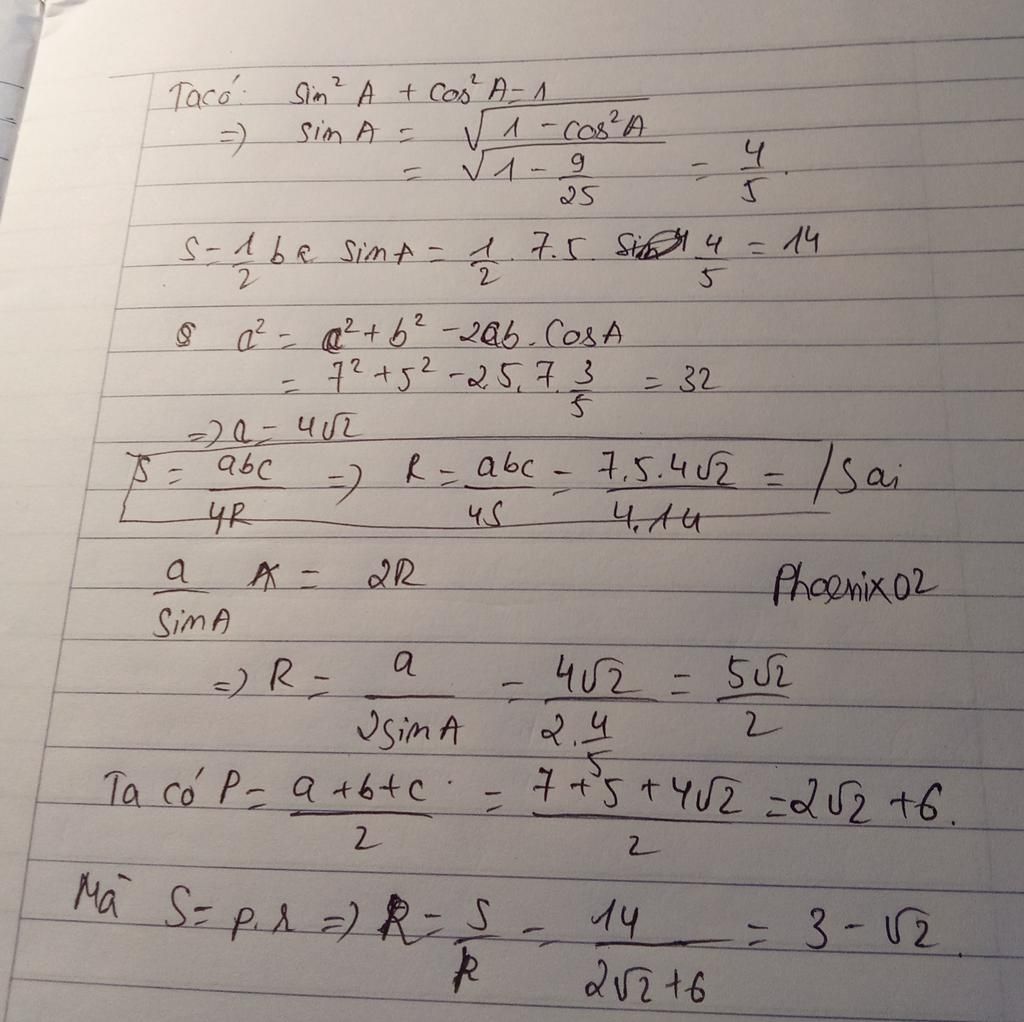 Ta có: sin² A + cos² A = 1
=> sin A = √(1 - cos² A)
= √(1 - 9/25) = 4/5.
S = 1/2 b c sin A = 1/2 . 7.5. 4/5 = 14
a² = c² + b² - 2ab. Cos A
= 7² + 5² - 2.5.7. 3/5 = 32
=> a = 4√2
S = abc/4R => R = abc/4S = 7.5.4√2/4.14 = / Sai
a/sin A = 2R
Phoenix02
=> R = a/2sin A = 4√2/2.4/5 = 5√2/2
Ta có P = a+b+c/2 = 7+5+4√2/2 = 2√2 + 6.
Mà S = p.r => R = S/p = 14/2√2+6 = 3 - √2.